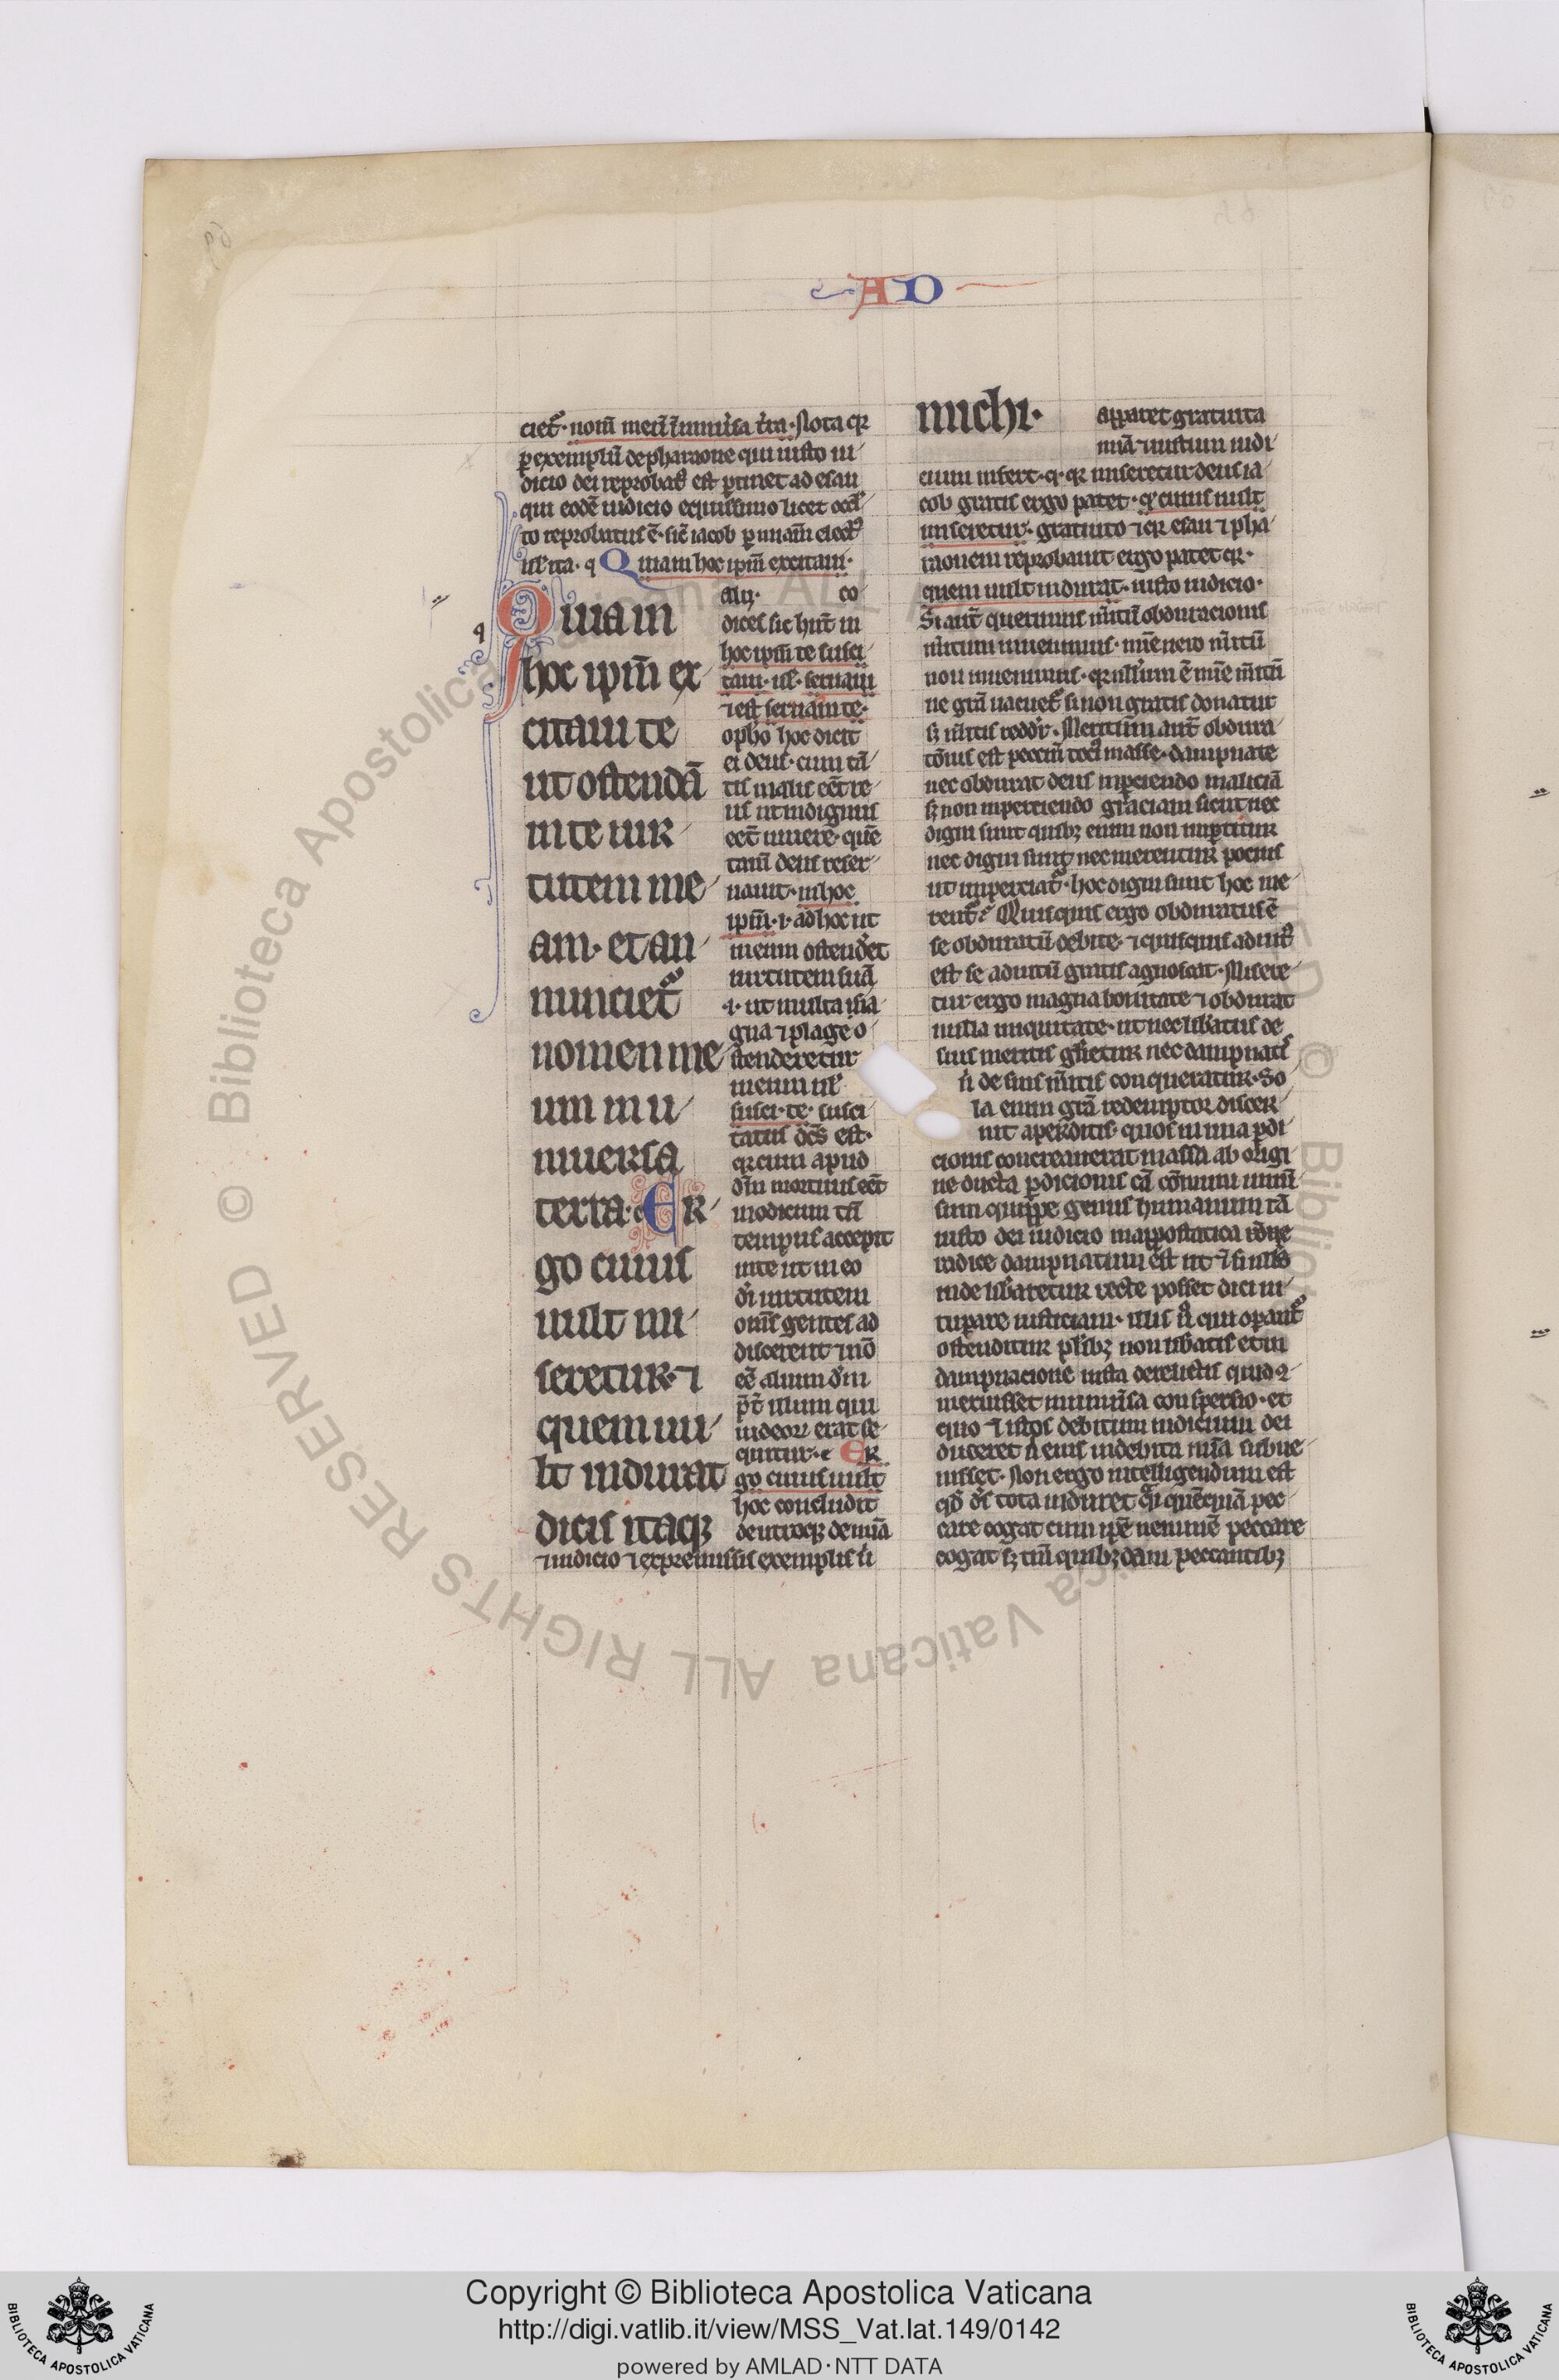 AD
ciet᷑· nom̅ meū ī uniu͛sa t͛ra· Nota qꝛ
ꝑ exemplū de pharaone qui iusto iu
dicio dei reprobatꝰ est ꝑtinet ad esau
qui eodē iudicio equissimo licet occl̓
to reprobatus ē· sic̅ iacob ꝑ mīam elect᷒
uł ita· q Quia in hoc ipm̅ excitaui·
q Quia in
hoc ipm̅ ex
citaui te
ut ostendā
in te uir
tutem me
am· et an
nunciet᷑
nomen me
um in u
niuersa
terra· c Er
go cuius
uult mi
seretur· ⁊
quem uu
lt indurat
dicis itaqꝫ
alij· co
dices sic hn̅t in
hoc ipm̅ te susci
taui· uł· seruaui
⁊ est seruaui te·
opho hoc dicit
ei deus· cum tā
tis malis eēt re
us ut indignus
eēt uiuere· quē
tam̅ deus reser
uauit· in hoc
ipm̅· i· ad hoc ut
in eum ostend͛et
uirtutem suā
·i· ut multa sig
gna ⁊ plage o
stenderetur
in eum uł
susci· te· susci
tatus dc̅s est·
qꝛ cum apud
dm̅ mortuus eēt
modicum tn̅
tempus accepit
uite ut in eo
di̅ uirtutem
om̅s gentes ad
discerent ⁊ nō
eē alium dm̅
p̅t̅ illum qui
iudeoꝝ erat se
quitur· c Er
go cuius uult
hoc concludit
de utroqꝫ de mīa
⁊ iudicio ⁊ ex premissis exemplis ň
michi·
apparet gratuita
mīa ⁊ iustum iudi
cium infert· q· qꝛ miseretur deus ia
cob gratis ergo patet· qꝛ cuius uult
miseretur· gratuito ⁊ qꝛ esau ⁊ pha
raonem reprobauit ergo patet qꝛ·
quem uult indurat· iusto iudicio·
Si aut̅ querimus m͛itū obduracionis
m͛itum inuenimus· mīe uero m͛itū
non inuenimus· qꝛ nłłum ē mīe m͛itū
ne grā uacuet᷑ si non gratis donatur
sꝫ m͛itis reddit᷑· Meritum aut̅ obdura
cōnis est peccm̅ toci᷒ masse· dampnate
nec obdurat deus imperciendo maliciā
sꝫ non imperciendo graciam sicut nec
digni sunt quibꝫ enim non imꝑtitur
nec digni sunt nec merentur pocius
ut imperciat᷑· hoc digni sunt hoc me
rent᷑· Quisquis ergo obduratus ē
se obduratū debite· ⁊ quisquis adiut᷒
est se adiutū gratis agnoscat· Misere
tur ergo magna bonitate ⁊ obdurat
nulla iniquitate· ut nec lib͛atus de
suis meritis gl̅ietur nec dampnat᷒
ň de suis m͛itis conqueratur· So
la enim grā redemptos discer
nit a ꝑditis· quos in una ꝑdi
cionis concreauerat massa ab origi
ne ducta ꝑdicionis cā cōmunis uniu͛
sum quippe genus humanum tā
iusto dei iudicio in appostatica
radice dampnatum est ut ⁊ si null᷒
inde lib͛aretur recte posset dei ui
tuperare iusticiam·
ostenditur plib͛ꝫ non lib͛atis et in
dampnacione iusta derelictis quid
meruisset uniu͛sa conspersio· et
quo ⁊ istos debitum iudicium dei
duceret ň eius indebita mīa subue
nisset· Non ergo intelligendum est
qd̅ ds̅ ita induret qͣi quēquā pec
care cogat cum ipē neminē peccare
cogat sꝫ tm̅ quibꝫdam peccantibꝫ
Copyright © Biblioteca Apostolica Vaticana
http://digi.vatlib.it/view/MSS_Vat.lat.149/0142
powered by AMLAD·NTT DATA
BIBLIOTECA APOSTOLICA VATICANA
BIBLIOTECA APOSTOLICA VATICANA